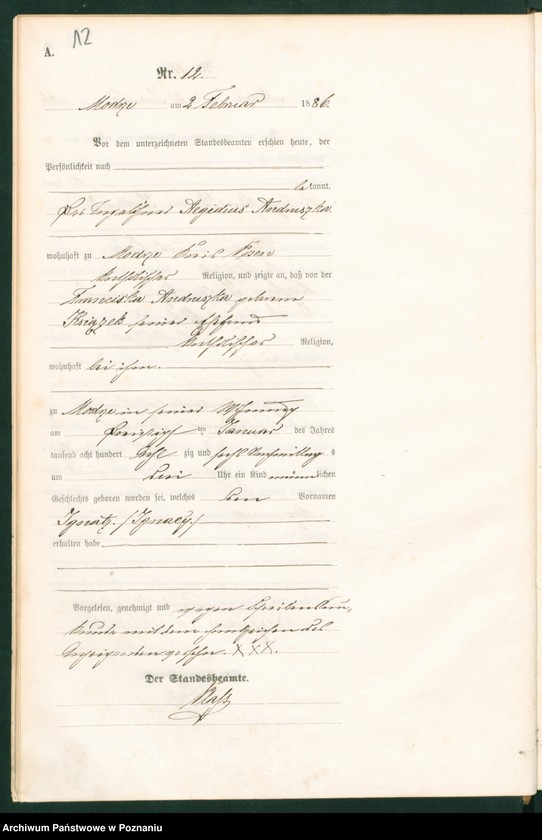 12
A.
Nr. 12.
Modze am 2 Februar 1886.
Vor dem unterzeichneten Standesbeamten erschien heute, der
Persönlichkeit nach
bekannt.
Der Aegidius Andruszka
wohnhaft zu Modze Kreis Posen
katholischer Religion, und zeigte an, daß von der
Franciska Andruszka geborene
Książek seiner Ehefrau
katholischer Religion,
wohnhaft bei ihm.
zu Modze in seiner Wohnung
am dreißigsten Januar des Jahres
tausend acht hundert achtzig und sechs Nachmittags
um drei Uhr ein Kind männlichen
Geschlechts geboren worden sei, welches den Vornamen
Ignatz /Ignacy/
erhalten habe
Vorgelesen, genehmigt und wegen Schreibens Un-
kunde mit dem Handzeichen des
Anzeigenden versehen. XXX.
Der Standesbeamte.
Archiwum Państwowe w Poznaniu